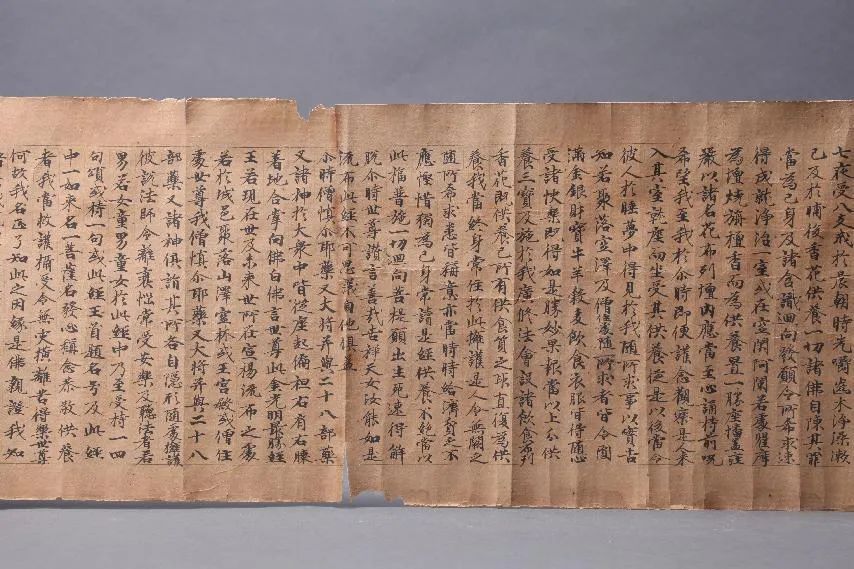 七夜受八支戒於晨朝時先嚼齒木淨澡漱
已及於晡後香花供養一切諸佛自陳其罪
當為己身及諸含識迴向發願令所希求速
得成就淨治一室或在空閑阿蘭若處瞿摩
為壇燒旃檀香而為供養置一勝座幡蓋莊
嚴以諸名花布列壇內應當至心誦持前呪
希望我至我於尒時即便護念觀察是人來
入其室就座而坐受其供養從是以後當令
彼人於睡夢中得見於我隨所求事以實告
知若聚落空澤及僧住處隨所求者皆令圓
滿金銀財寶牛羊穀麦飲食衣服皆得隨心
受諸快樂既得如是勝妙果報當以上分供
養三寶及施於我廣修法會設諸飲食布列
香花既供養已所有供養貨之取直復為供
養我當終身常住於此擁護是人令無闕乏
隨所希求悉皆稱意亦當時時給濟貧乏不
應慳惜獨為己身常讀是經供養不絕當以
此福普施一切迴向菩提願出生死速得解
脫尒時世尊讚言善哉吉祥天女汝能如是
流布此經不可思議自他俱益
尒時僧慎尒耶藥叉大將并與二十八部藥
叉諸神於大眾中皆從座起偏袒右肩右膝
着地合掌向佛白佛言世尊此金光明最勝經
王若現在世及未來世所在宣揚流布之處
若於城邑聚落山澤空林或王宮殿或僧住
處世尊我僧慎尒耶藥叉大將并與二十八
部藥叉諸神俱詣其所各自隱形隨處擁護
彼說法師令離衰惱常受安樂及聽法者若
男若女童男童女於此經中乃至受持一四
句頌或持一句或此經王首題名号及此經
中一如來名一菩薩名發心稱念恭敬供養
者我當救護攝受令無災橫離苦得樂世尊
何故我名正了知此之因緣是佛親證我知